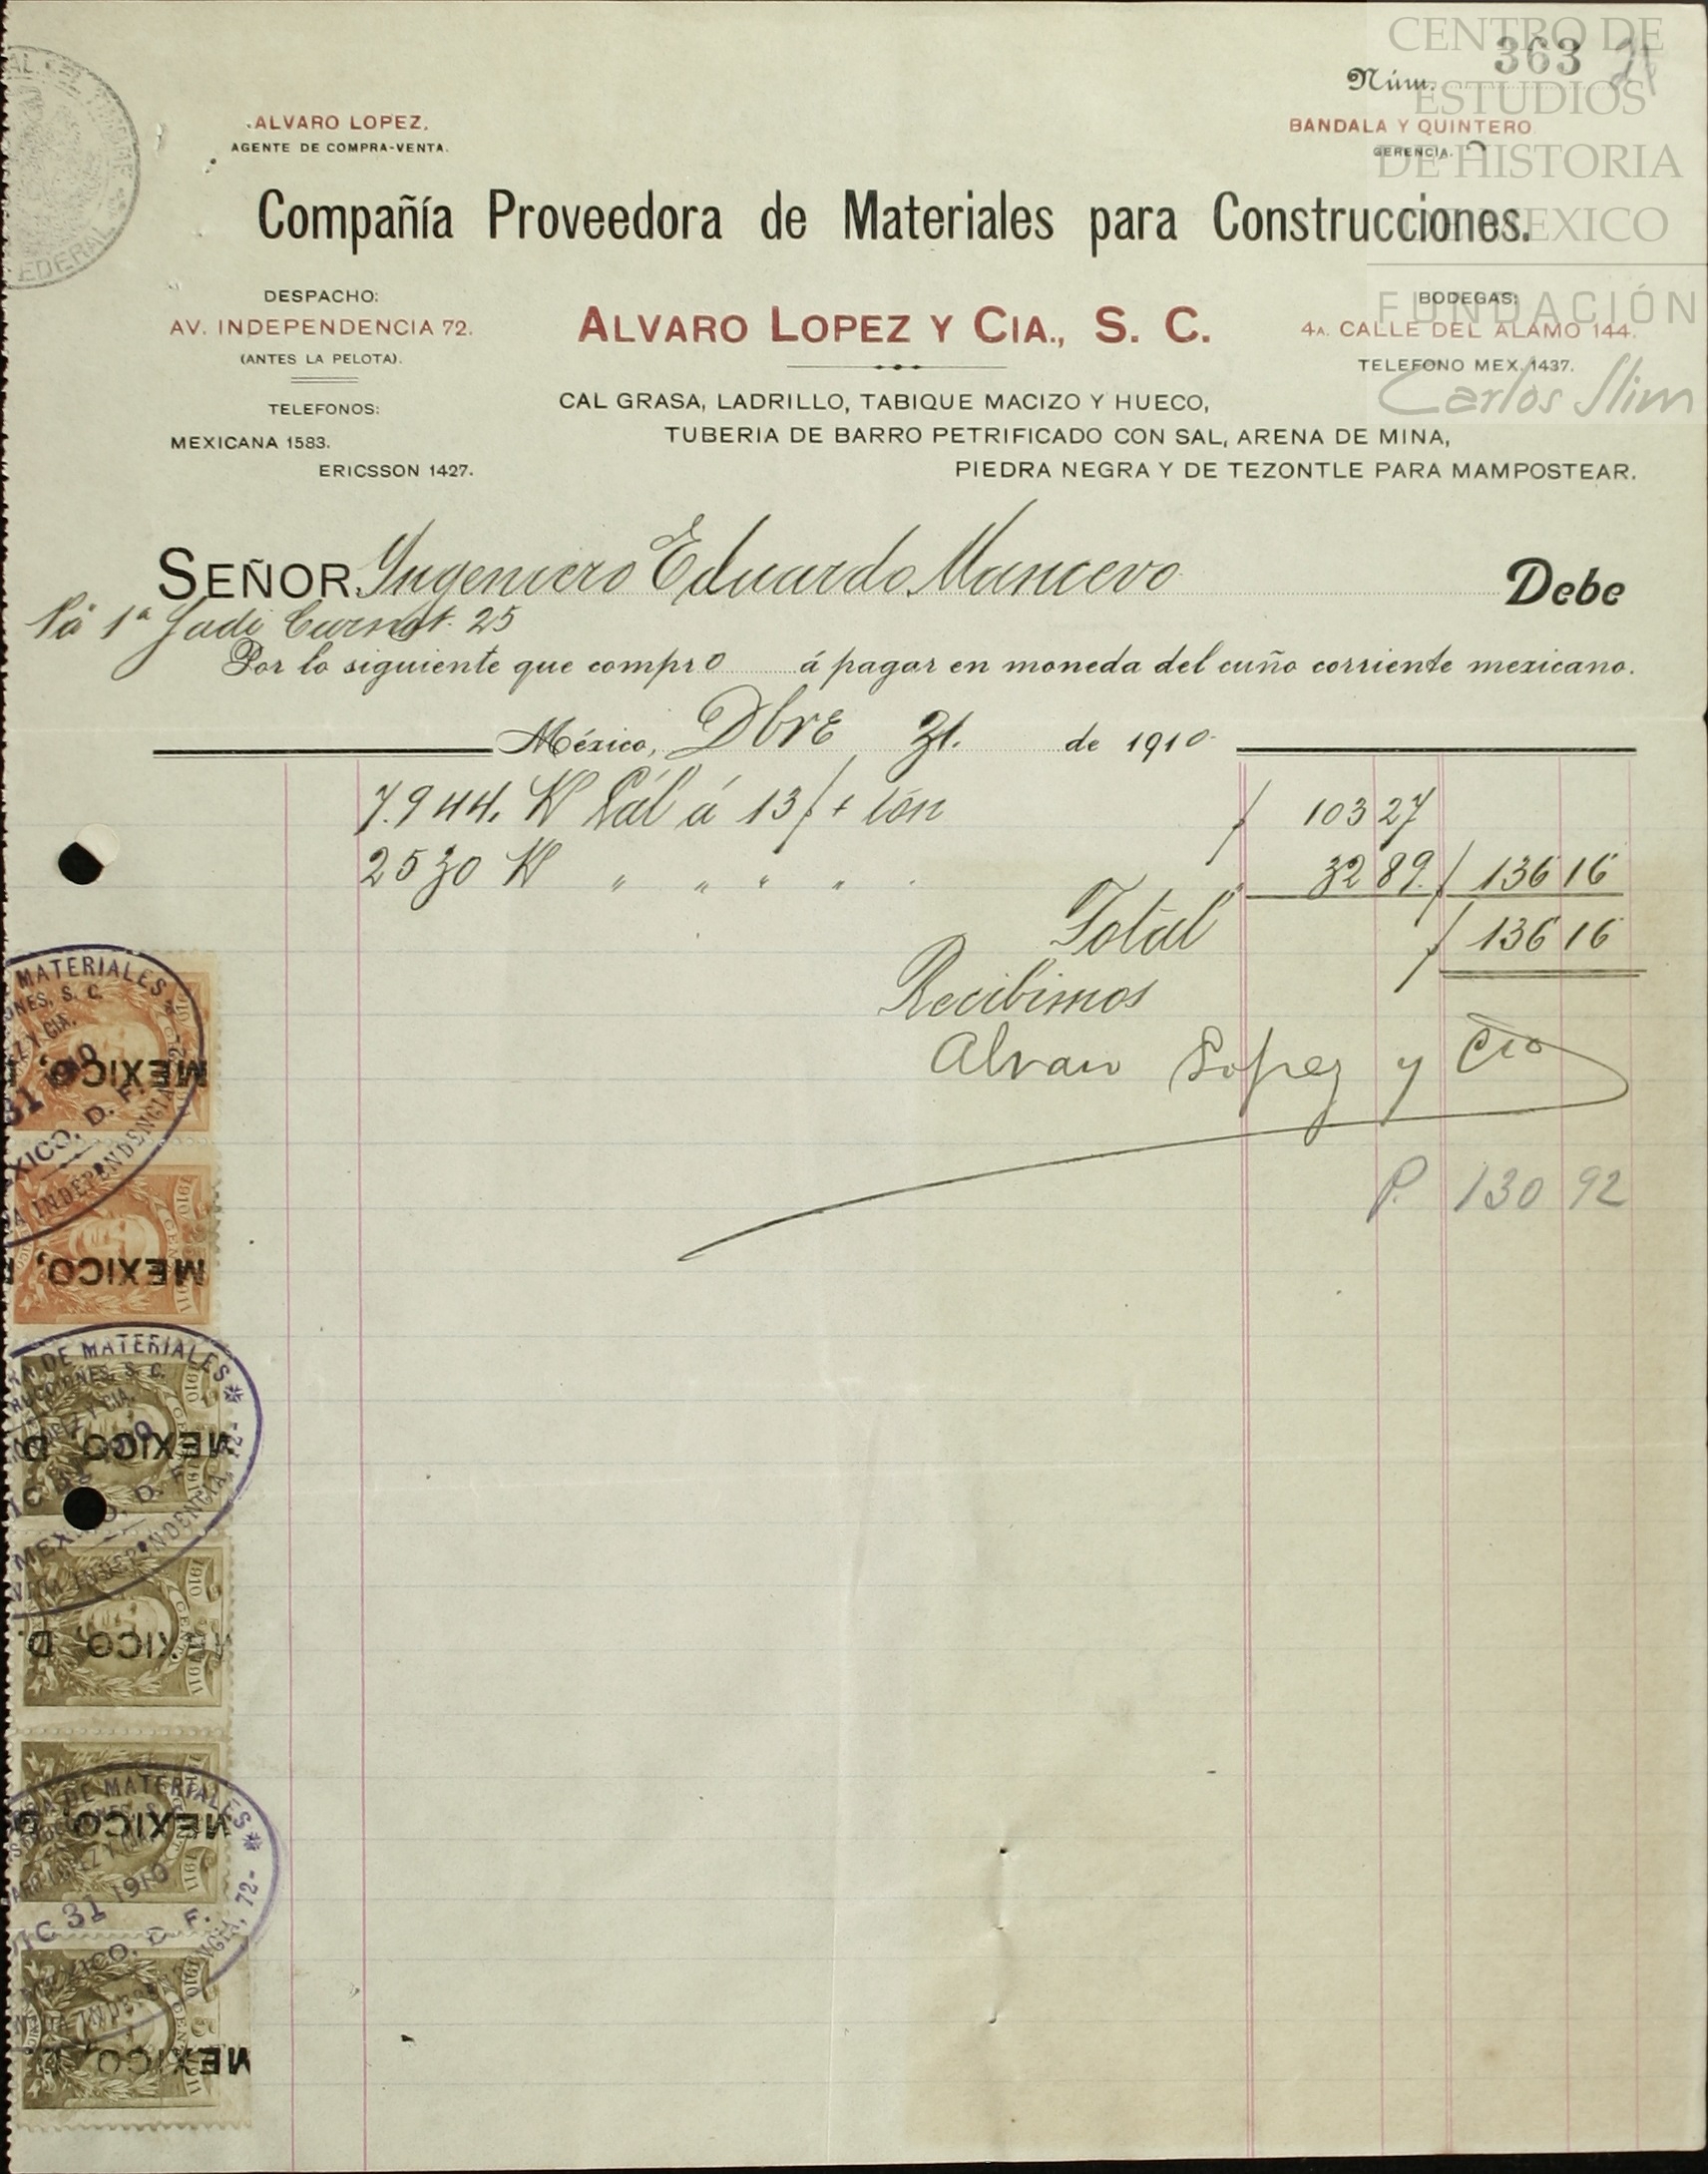 CENTRO DE
ESTUDIOS
DE HISTORIA
DE MEXICO
FUNDACIÓN
Carlos Slim
Núm. 363
ALVARO LOPEZ,
AGENTE DE COMPRA-VENTA.
BANDALA Y QUINTERO
GERENCIA.
Compañía Proveedora de Materiales para Construcciones.
DESPACHO:
AV. INDEPENDENCIA 72.
(ANTES LA PELOTA).
TELEFONOS:
MEXICANA 1583.
ERICSSON 1427.
ALVARO LOPEZ Y CIA., S. C.
BODEGAS:
4A. CALLE DEL ALAMO 144.
TELEFONO MEX. 1437.
CAL GRASA, LADRILLO, TABIQUE MACIZO Y HUECO,
TUBERIA DE BARRO PETRIFICADO CON SAL, ARENA DE MINA,
PIEDRA NEGRA Y DE TEZONTLE PARA MAMPOSTEAR.
SEÑOR Ingeniero Eduardo Mancevo Debe
1ª 25
Por lo siguiente que compro á pagar en moneda del cuño corriente mexicano.
México, Dbre 31. de 1910
7.944. K Cál á 13 ton $ 103 27
2530 K " " " " " 32 89. $ 136 16
Total $ 136 16
Recibimos
Alvaro Lopez y Cia
P. 130 92
MATERIALES
MEXICO,
MEXICO, D. F.
INDEPENDENCIA 72-
MEXICO,
RA DE MATERIALES
S. C.
LOPEZ Y CIA.
MEXICO, D
MEXICO, D. F.
INDEPENDENCIA, 72-
MEXICO, D.
RA DE MATERIALES
MEXICO,
DIC 31 1910
MEXICO, D. F.
INDEPENDENCIA, 72-
MEXICO,
FEDERAL